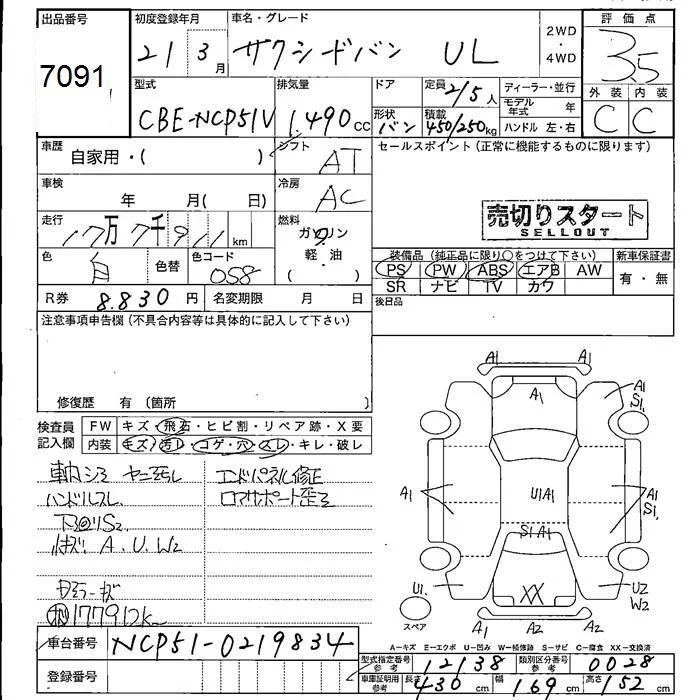 出品番号
7091
初度登録年月
21 3月
車名・グレード
サクシードバン UL
2WD
・
4WD
評価点
3.5
外装 内装
C C
型式
CBE-NCP51V
排気量
1,490cc
ドア
形状
バン
定員
2/5人
積載
450/250kg
ディーラー・並行
モデル年式 年
ハンドル 左・右
車歴
自家用・( )
シフト
AT
車検
年 月( 日)
冷房
AC
走行
17万7千911km
燃料
ガソリン
軽・油
( )
色
白
色替
色コード
058
R券 8,830円
名変期限 月 日
セールスポイント(正常に機能するものに限ります)
売切りスタート
SELLOUT
装備品(純正品に限り○をつけて下さい)
PS PW ABS エアB AW
SR ナビ TV カワ
新車保証書
有・無
後日品
注意事項申告欄(不具合内容等は具体的に記入して下さい)
修復歴 有(箇所 )
検査員
記入欄
FW キズ・飛石・ヒビ割・リペア跡・X要
内装 キズ・汚レ・コゲ・穴・スレ・キレ・破レ
内シミ ヤニ汚レ
ハンドルスレ
下回りS2
A.U.W2
177912k
エンドパネル修正
ロアサポート歪ミ
A1 A1
A1
A1
S1.
A1
U1A1
A1
S1.
S1A1
U1.
XX
U2
W2
スペア
A1 A2 A2
A-キズ E-エクボ U-凹み W-補修跡 S-サビ C-腐食 XX-交換済
車台番号 NCP51-0219834
登録番号
型式指定番号
参考
12138
類別区分番号
参考
0028
車庫証明用
参考
長さ 430cm 幅 169cm 高さ 152cm